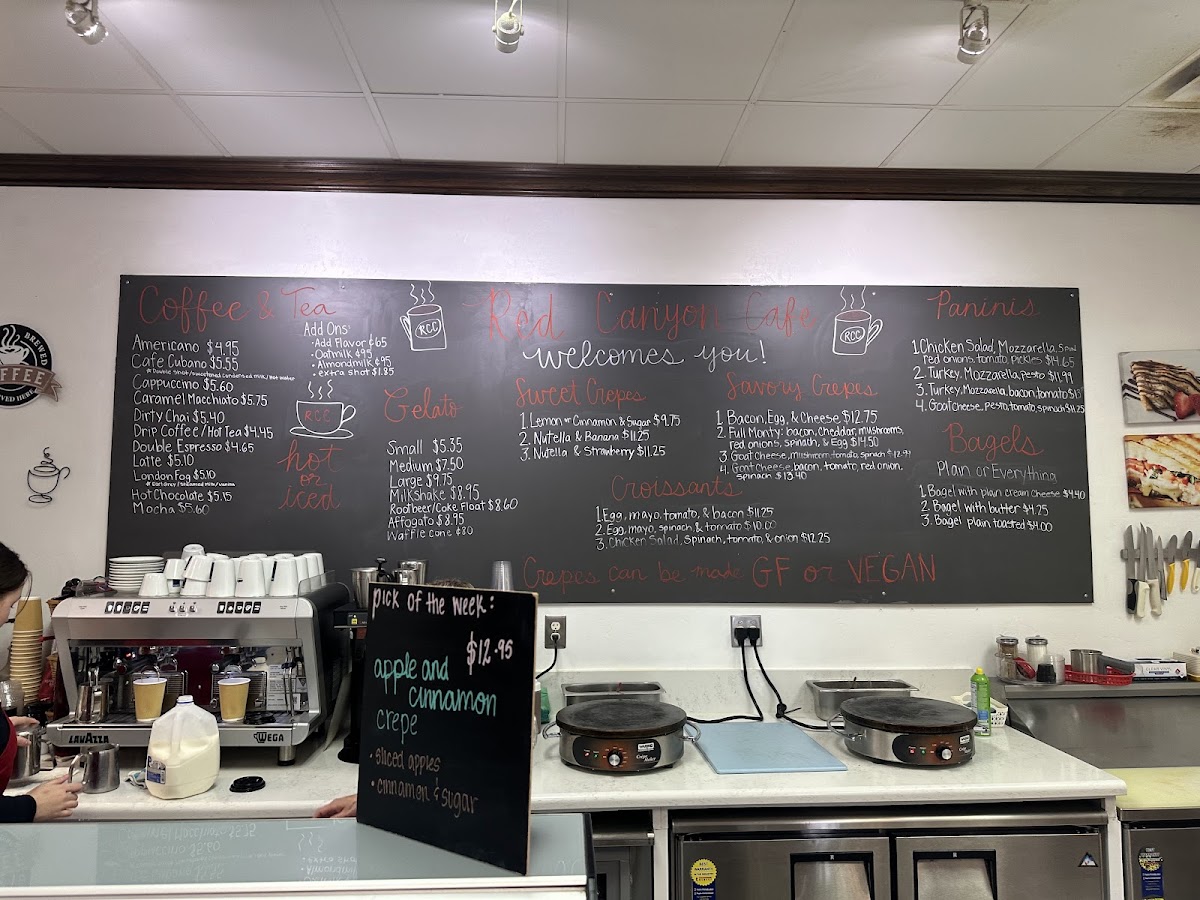 Coffee & Tea
Americano $4.95
Cafe Cubano $5.55
* Double shot/sweetened condensed milk/Hot water
Cappuccino $5.60
Caramel Macchiato $5.75
Dirty Chai $5.40
Drip Coffee/Hot Tea $4.45
Double Espresso $4.65
Latte $5.10
London Fog $5.10
* Earl Grey/Steamed milk/vanilla
Hot Chocolate $5.15
Mocha $5.60
Add Ons:
• Add Flavor ¢65
• Oatmilk ¢95
• Almondmilk ¢95
• extra shot $1.85
RCC
hot
or
iced
RCC
Gelato
Small $5.35
Medium $7.50
Large $9.75
Milkshake $8.95
Rootbeer/Coke Float $8.60
Affogato $8.95
Waffle cone ¢80
Red Canyon Cafe
welcomes you!
RCC
Sweet Crepes
1. Lemon or Cinnamon & Sugar $9.75
2. Nutella & Banana $11.25
3. Nutella & Strawberry $11.25
Savory Crepes
1. Bacon, Egg, & Cheese $12.75
2. Full Monty: bacon, Cheddar, mushrooms,
red onions, spinach, & Egg $14.50
3. Goat Cheese, mushroom, tomato, spinach $12.99
4. Goat Cheese, bacon, tomato, red onion,
spinach $13.40
Croissants
1. Egg, mayo, tomato, & bacon $11.25
2. Egg, mayo, spinach, & tomato $10.00
3. Chicken Salad, spinach, tomato, & onion $12.25
Crepes can be made GF or VEGAN
Paninis
1. Chicken Salad, Mozzarella,
red onions, tomato, pickles, $14.65
2. Turkey, Mozzarella, pesto, $11.99
3. Turkey, Mozzarella, bacon, tomato
4. Goat Cheese, pesto, tomato, spinach $11.25
Bagels
Plain or Everything
1. Bagel with plain cream cheese $4.90
2. Bagel with butter $4.25
3. Bagel plain toasted $4.00
BREWED
COFFEE
SERVED HERE
pick of the week:
$12.95
apple and
cinnamon
crepe
• sliced apples
• cinnamon & sugar
LAVAZZA
WEGA